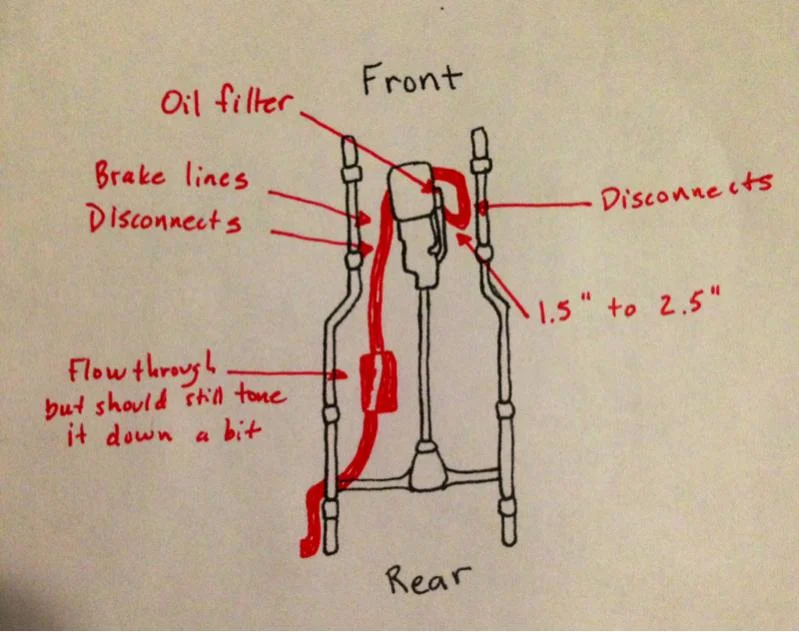 Front
Oil filter
Brake lines
Disconnects
Disconnects
1.5" to 2.5"
Flowthrough
but should still tone
it down a bit
Rear